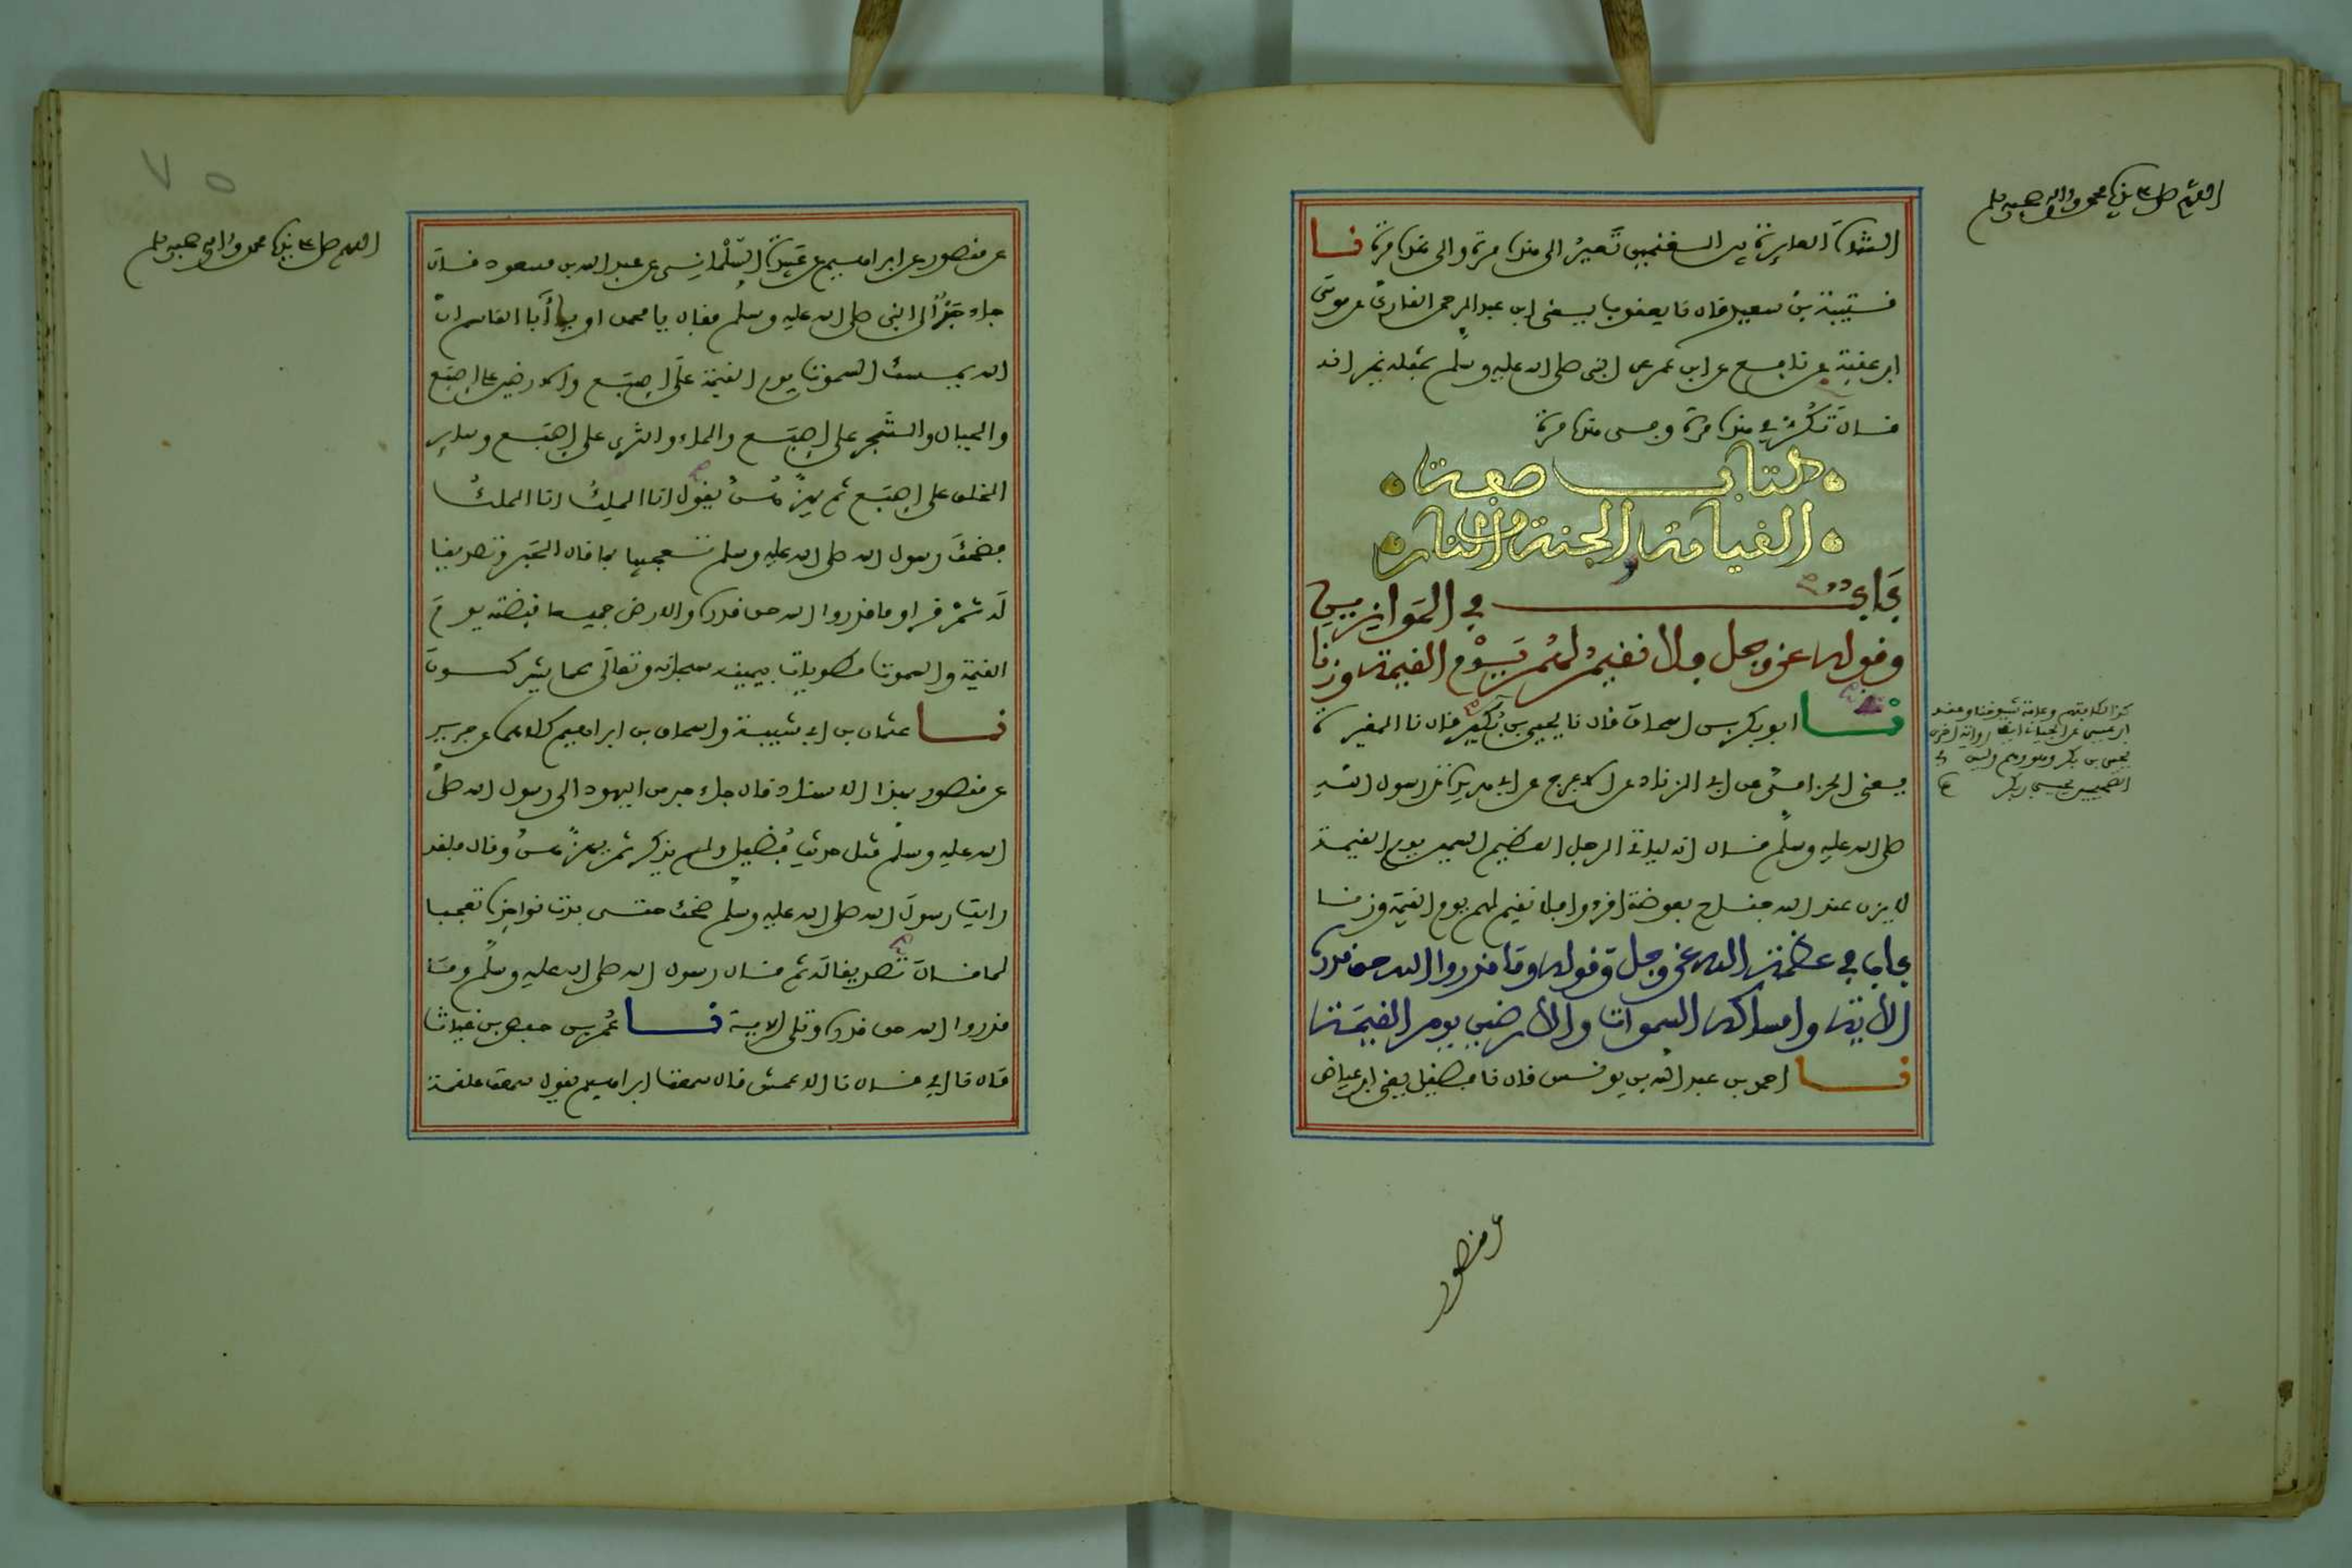 الشاة العايرة بين الغنمين تعير الى هذه مرة والى هذه مرة نا
قتيبة بن سعيد قال نا يعقوب يعني ابن عبد الرحمن القاري عن موسى
ابن عقبة عن نافع عن ابن عمر عن النبي صلى الله عليه وسلم بمثله غير انه
قال تكر في هذه مرة وفي هذه مرة
كتاب صفة
القيامة والجنة والنار
باب في الموازين
وقوله عز وجل فلا نقيم لهم يوم القيمة وزنا
نا ابو بكر بن اسحاق قال نا يحيى بن بكير قال نا المغيرة
يعني الحزامي عن ابي الزناد عن الاعرج عن ابي هريرة عن رسول الله
صلى الله عليه وسلم قال انه لياتي الرجل العظيم السمين يوم القيمة
لا يزن عند الله جناح بعوضة اقرءوا فلا نقيم لهم يوم القيمة وزنا
باب في عظمة الله عز وجل وقوله وما قدروا الله حق قدره
الاية وامساكه السموات والارضين يوم القيمة
نا احمد بن عبد الله بن يونس قال نا فضيل يعني ابن عياض
اللهم صل على نبينا محمد واله وصحبه وسلم
يحيى بن بكير
عن منصور
عن منصور عن ابراهيم عن عبيدة السلماني عن عبد الله بن مسعود قال
جاء حبر الى النبي صلى الله عليه وسلم فقال يا محمد او يا أبا القاسم ان
الله يمسك السموت يوم القيمة على اصبع والارضين على اصبع
والجبال والشجر على اصبع والماء والثرى على اصبع وساير
الخلق على اصبع ثم يهزهن يقول انا الملك انا الملك
فضحك رسول الله صلى الله عليه وسلم تعجبا مما قال الحبر وتصديقا
له ثم قرا وما قدروا الله حق قدره والارض جميعا قبضته يوم
القيمة والسموت مطويات بيمينه سبحانه وتعالى عما يشركون
نا عثمان بن ابي شيبة واسحاق بن ابراهيم كلاهما عن جرير
عن منصور بهذا الاسناد قال جاء حبر من اليهود الى رسول الله صلى
الله عليه وسلم مثل حديث فضيل ولم يذكر ثم يهزهن وقال فلقد
رايت رسول الله صلى الله عليه وسلم ضحك حتى بدت نواجذه تعجبا
لما قال تصديقا له ثم قال رسول الله صلى الله عليه وسلم وما
قدروا الله حق قدره وتلى الاية نا عمر بن حفص بن غياث
قال نا ابي قال نا الاعمش قال سمعت ابراهيم يقول سمعت علقمة
اللهم صل على نبينا محمد واله وصحبه وسلم
٧٥